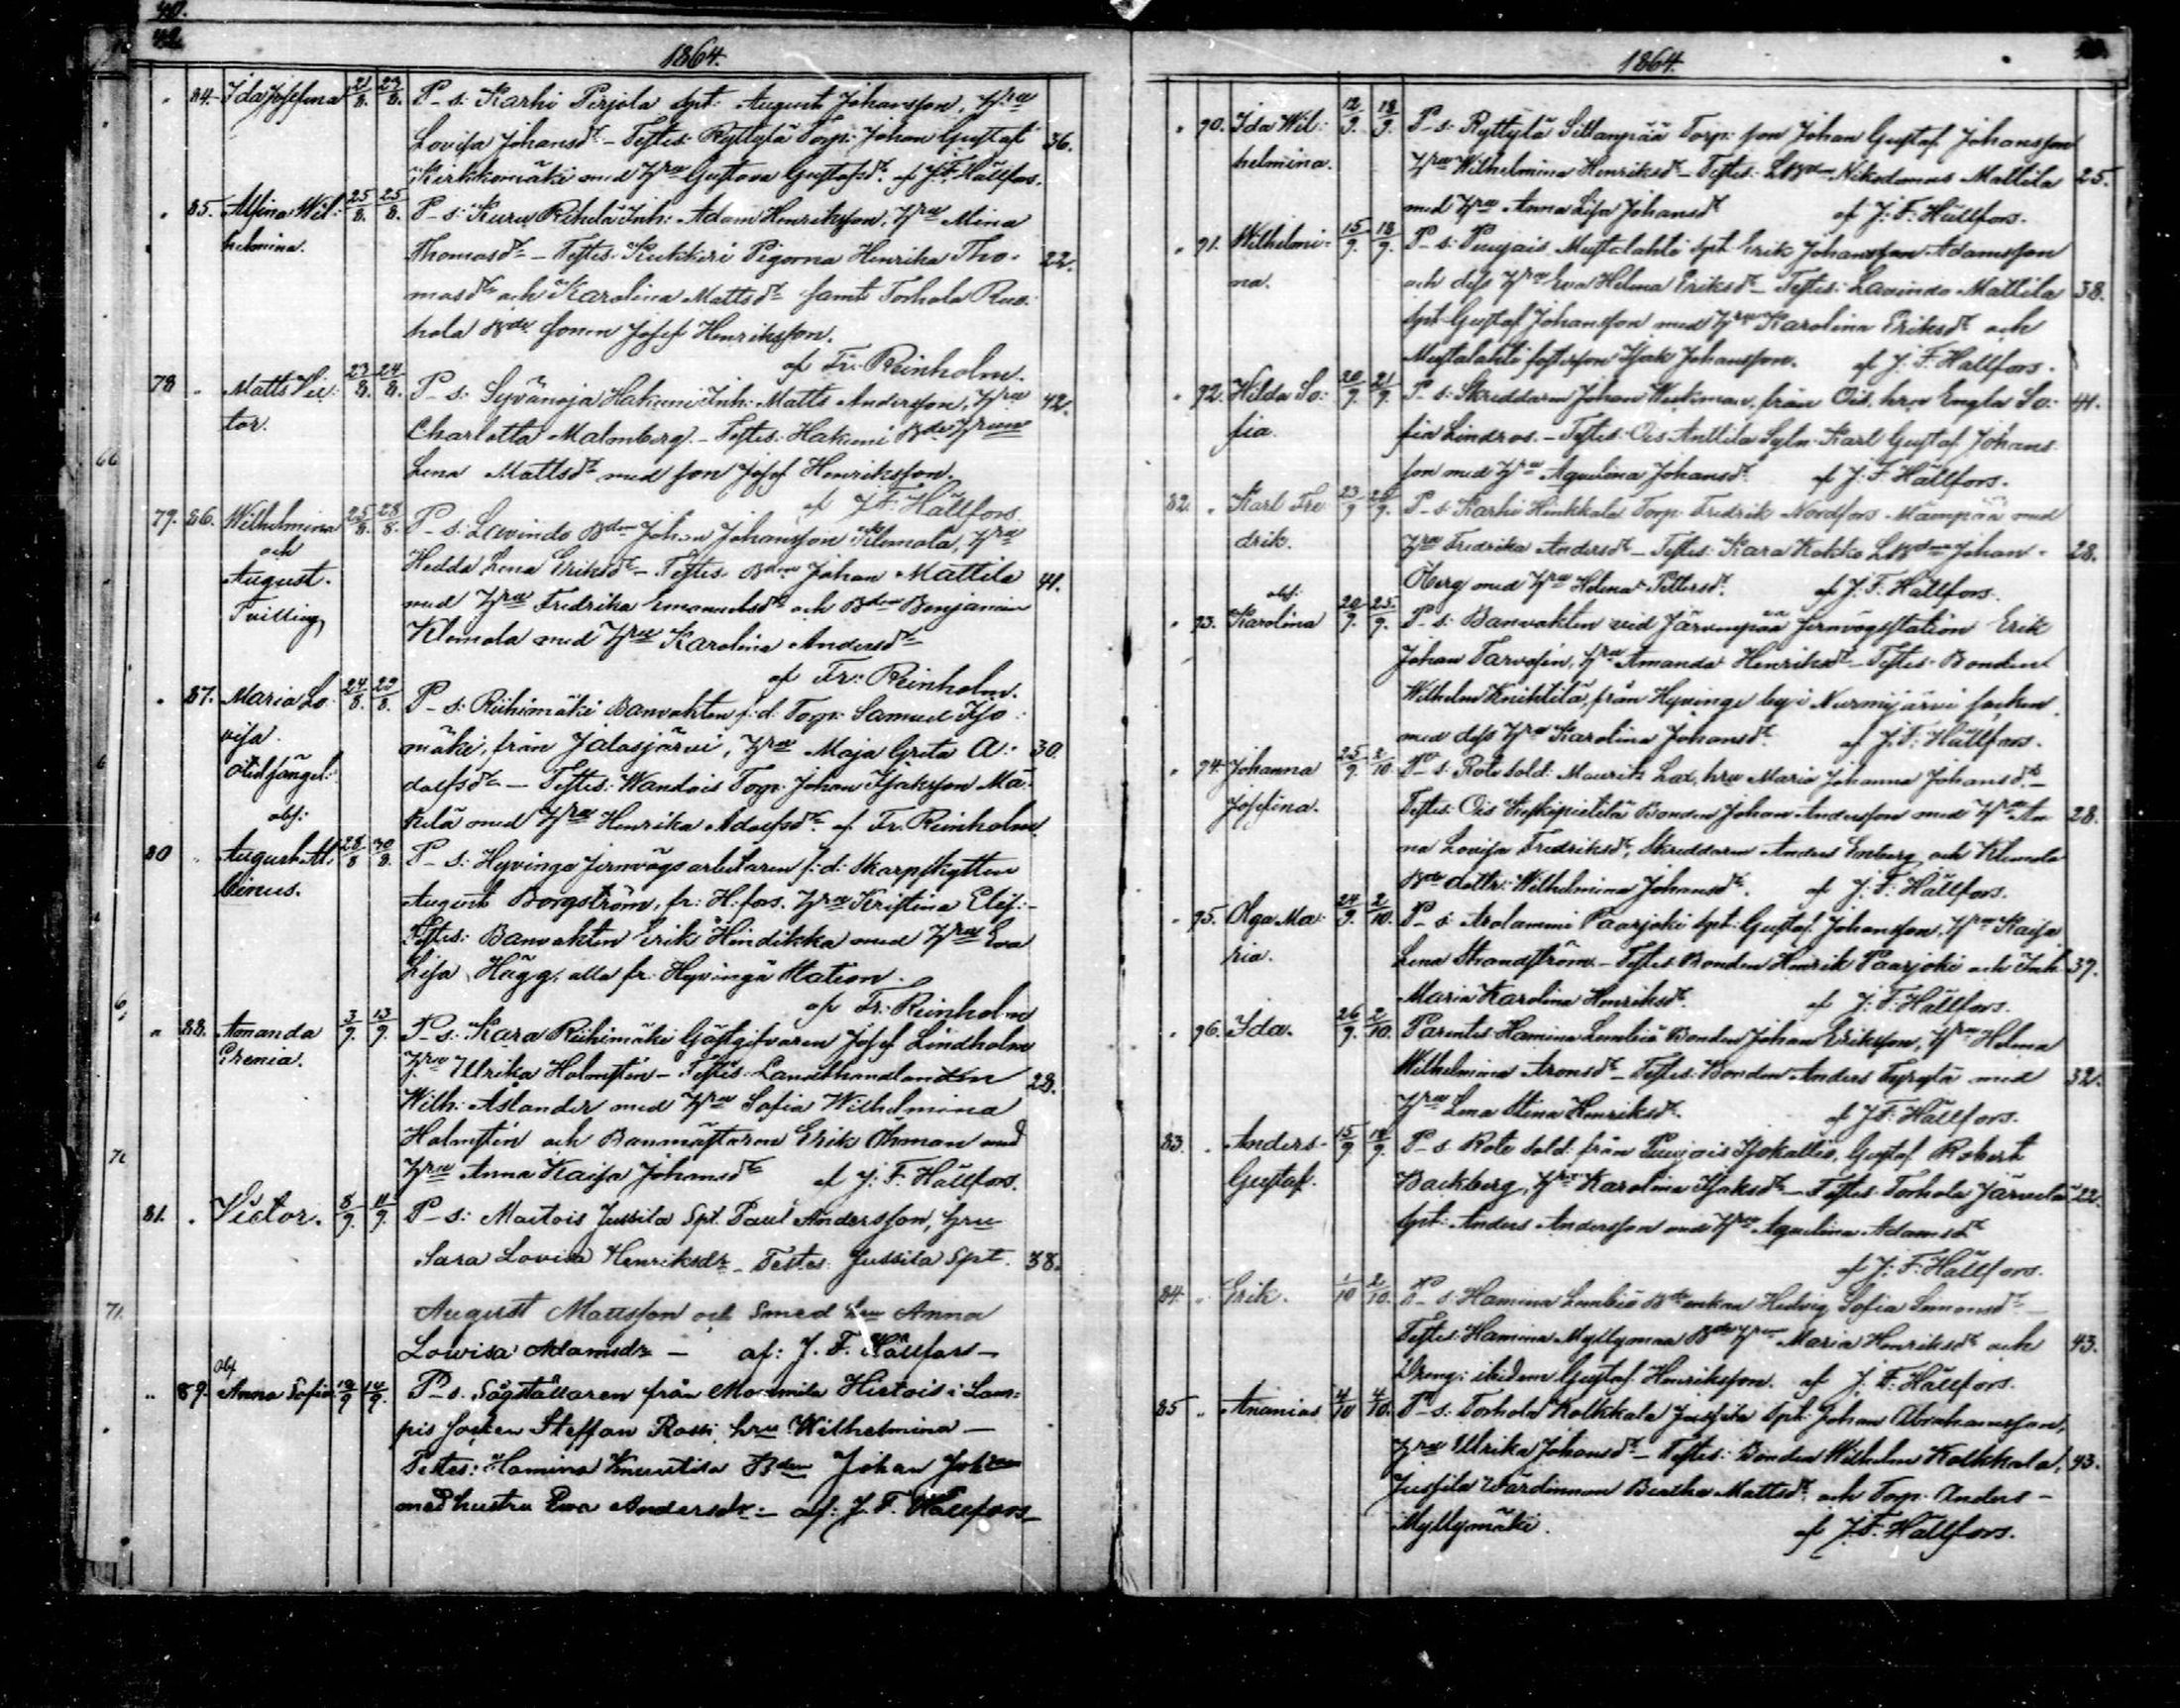 40.
42.
1864.
84. Ida Josefina 21/8. 23/8. P_s: Karhi Perjola Spt: August Johansson, Hru
Lovisa Johansdr – Testes: Ryttylä Torp: Johan Gustaf 36.
Kirkkomäki med Hru Gustava Gustafsdr. af J. F. Hällfors.
85. Alfina Wil: 25/8. 25/8. P_s: Kuru Rihelä Inh: Adam Henriksson, Hru Mina
helmina. Thomasdr – Testes: Kukkeri Pigorna Henrika Tho- 22.
masdr och Karolina Mattsdr samt Torhola Ruo-
hola Bde sonen Josef Henriksson.
af Fr: Reinholm.
78 Matts Vic: 23/8. 24/8. P_s: Syvänoja Hakumi Inh: Matts Andersson, Hru 42.
tor. Charlotta Malmberg. – Testes: Hakumi Bde Hrun
Lena Mattsdr med son Josef Henriksson.
af J. F. Hällfors.
79. 86. Wilhelmina 25/8. 28/8. P_s: Lavindo Bden Johan Johansson Klemola, Hru
och Hedda Lena Eriksdr – Testes Bden Johan Mattila 41.
August. med Hru Fredrika Emanuelsdr och Bden Benjamin
Tvilling Klemola med Hru Karolina Andersdr
af Fr: Reinholm.
87. Maria Lo- 24/8. 29/8. P_s: Riihimäki Banvakten f: d: Torp: Samuel Iso:
visa. mäki, från Jalasjärvi, Hru Maja Greta A:- 30.
dolfsdr – Testes: Wandois Torp: Johan Isaksson Mä-
abs: kelä med Hru Henrika Adolfsdr. af Fr. Reinholm.
80 August Al: 28/8 30/8. P_s: Hyvinge Jernvägsarbetaren f: d: Skarpskytten
binus. August Borgström, fr: H:fors. Hru Kristina Elis:-
Testes: Banvakten Erik Hindikka med Hru Eva
Lisa Hägg, alla fr: Hyvinge Station.
af Fr: Reinholm
88. Amanda 3/9. 13/9. P_s: Kara Riihimäki Gästgifvaren Josef Lindholm
Irenia. Hru Ulrika Holmstén – Testes: Landthandlanden 28.
Wilh: Åslander med Hru Sofia Wilhelmina
Holmstén och Banmästaren Erik Öhman med
Hru Anna Kaisa Johansdr af J: F. Hällfors.
81. Victor. 8/9. 11/9. P_s: Maitois Jussila Spt. Paul Andersson, hru
Sara Lovisa Henriksdr – Testes: Jussila Spt. 38.
August Mattsson och Smed hru Anna
Lowisa Adamsdr – af: J. F. Hällfors –
abs
89. Anna Sofia 12/9 14/9. P_s. Sågställaren från Mommila Hietois i Lam:
pis socken Steffan Rossi, hru Wilhelmina –
Testes: Hamina Knuutila Bden Johan Johan
med hustru Eva Andersdr – af: J. F. Hällfors –
1864.
90. Ida Wil: 12/9. 18/9. P_s: Ryttylä Sillanpää Torp: son Johan Gustaf Johansson
helmina. Hru Wilhelmina Henriksdr – Testes: LBden Nikodemus Mattila 25.
med Hru Anna Lisa Johansdr af J: F: Hällfors.
91. Wilhelmi- 15/9. 18/9. P_s: Punjais Mustalahti Spt. Erik Johansson Adamsson
na. och dess Hru Eva Helena Eriksdr – Testes: Lavinda Mattila 38.
Spt: Gustaf Johansson med Hru Karolina Eriksdr och
Mustalahti fosterson Isak Johansson. af J: F. Hällfors.
92. Hilda So: 20/9. 21/9. P_s: Skreddaren Johan Weckman, från Ois, hru Engla So:- 41.
fia. fia Lindros. – Testes: Ois Anttila Sytn. Karl Gustaf Johans-
son med Hru Aquilina Johansdr. af J: F. Hällfors.
82. Karl Fre- 23/9 25/9. P_s: Karhi Hinkkala Torp: Fredrik Nordfors Mäenpää med
drik. Hru Fredrika Andersdr – Testes: Kara Kokko LBden Johan 28.
Öberg med Hru Helena Pettersdr. af J: F. Hällfors.
abs:
93. Karolina 20/9. 25/9. P_s: Banvakten vid Järvenpää Jernvägsstation Erik
Johan Tarvosén, Hru Amanda Henriksdr – Testes: Bonden
Wilhelm Knihtilä, från Hyvinge by i Nurmijärvi socken
med dess Hru Karolina Johansdr. af J. F. Hällfors.
94. Johanna 25/9. 2/10. P_s: Rote Sold: Maurits Lax, hru Maria Johanna Johansdr. –
Josefina. Testes: Ois Keskipietilä Bonden Johan Andersson med Hru An- 28.
na Lovisa Fredriksdr, Skreddaren Anders Enberg, och Klemola
Bde dottr: Wilhelmina Johansdr. af J. F. Hällfors.
95. Olga Ma: 24/9. 2/10. P_s: Arolammi Paarjoki Spt: Gustaf Johansson, Hru Kaisa
ria. Lena Strandström – Testes: Bonden Henrik Paarjoki och Inh: 39.
Maria Karolina Henriksdr. af J: F. Hällfors.
96. Ida. 26/9. 2/10. Parentes Hamina Lembiä Bonden Johan Eriksson, Hru Helena
Wilhelmina Aronsdr – Testes: Bonden Anders Tyrylä med 32.
Hru Lena Stina Henriksdr. af J. F. Hällfors.
83. Anders 15/9 18/9. P_s. Rote Sold: från Punjois Isokallio, Gustaf Robert
Gustaf. Backberg, Hru Karolina Isaksdr – Testes: Torhola Järvelä 22.
Spt: Anders Andersson med Hru Aquilina Adamsdr
af J: F. Hällfors.
84. Erik. 1/10 2/10. P_s: Hamina Lembiä Bde enkan Hedvig Sofia Simonsdr –
Testes: Hamina Myllymaa Bde Hrun Maria Henriksdr och 43.
Dreng: ibidem Gustaf Henriksson. af J. F. Hällfors.
85 Ananias 4/10 4/10. P_s: Torhola Kolkkala Jussila Spt: Johan Abrahamsson,
Hru Ulrika Johansdr – Testes: Bonden Wilhelm Kolkkala, 43.
Jussila Värdinnan Bertha Mattsdr. och Torp. Anders
Myllymäki. af J. F. Hällfors.